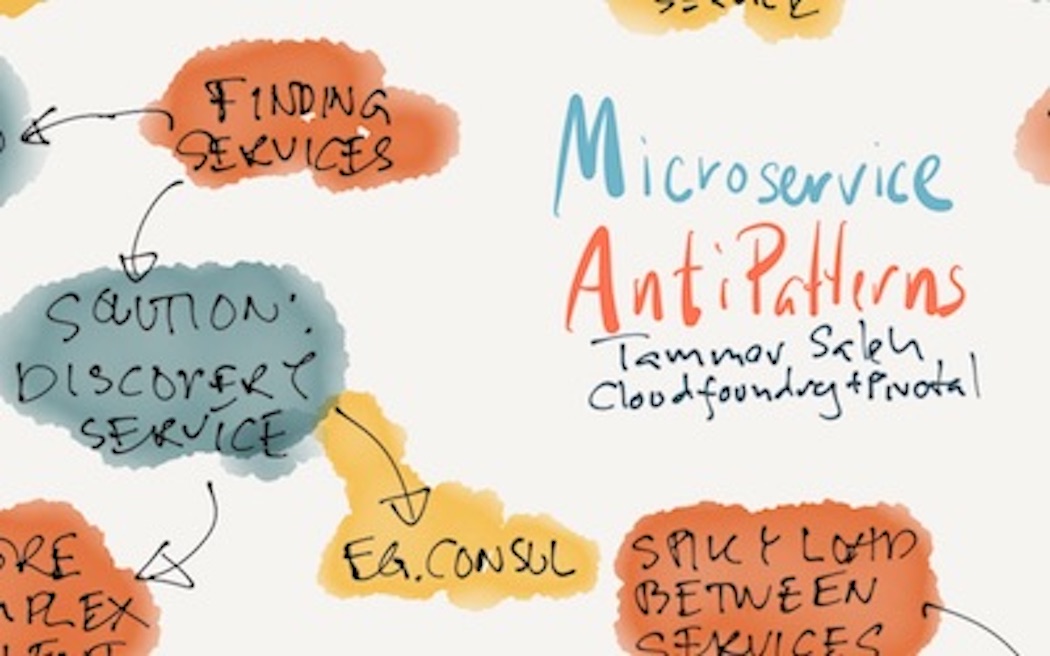 SERVICE
FINDING
SERVICES
Microservice
AntiPatterns
Tammer Saleh,
Cloudfoundry+Pivotal
SOLUTION:
DISCOVERY
SERVICE
EG. CONSUL
SPIKY LOAD
BETWEEN
SERVICES